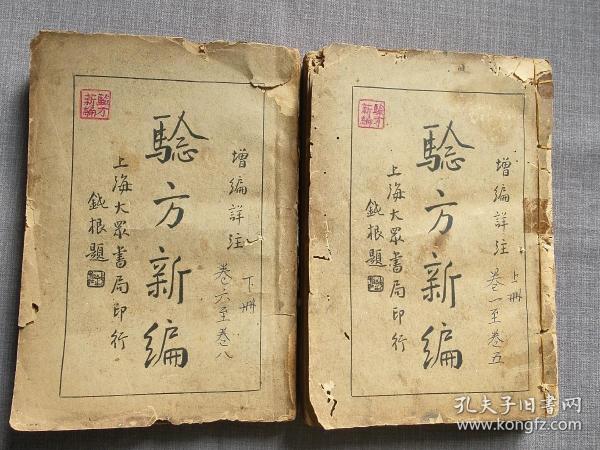 增編詳注
上冊
卷一至卷五
驗方新編
上海大眾書局印行
鈍根題
驗方
新編
增編詳注
下冊
卷六至卷八
驗方新編
上海大眾書局印行
鈍根題
驗方
新編
孔夫子旧书网
www.kongfz.com